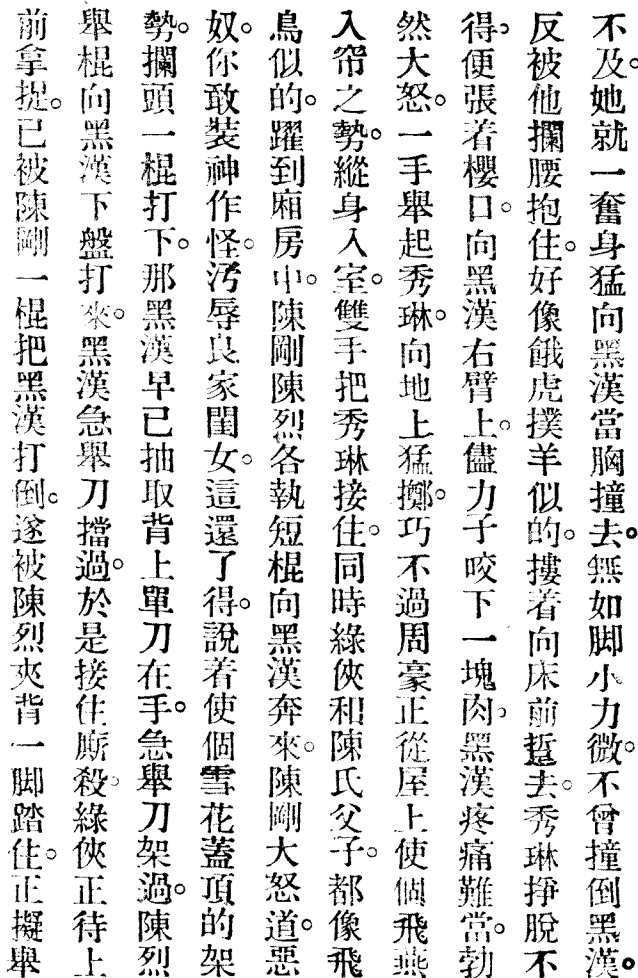 不及。她就一奮身猛向黑漢當胸撞去。無如脚小力微。不曾撞倒黑漢。
反被他攔腰抱住。好像餓虎撲羊似的。摟着向床前踅去。秀琳掙脫不
得。便張着櫻口。向黑漢右臂上。儘力子咬下一塊肉。黑漢疼痛難當。勃
然大怒。一手舉起秀琳。向地上猛擲。巧不過周豪正從屋上使個飛燕
入帘之勢。縱身入室。雙手把秀琳接住。同時綠俠和陳氏父子。都像飛
鳥似的。躍到廂房中。陳剛陳烈各執短棍向黑漢奔來。陳剛大怒道。惡
奴。你敢裝神作怪。汚辱良家閨女。這還了得。說着使個雪花蓋頂的架
勢。攔頭一棍打下。那黑漢早已抽取背上單刀在手。急舉刀架過。陳烈
舉棍向黑漢下盤打來。黑漢急舉刀擋過。於是接住廝殺。綠俠正待上
前拿捉。已被陳剛一棍把黑漢打倒。遂被陳烈夾背一脚踏住。正擬舉